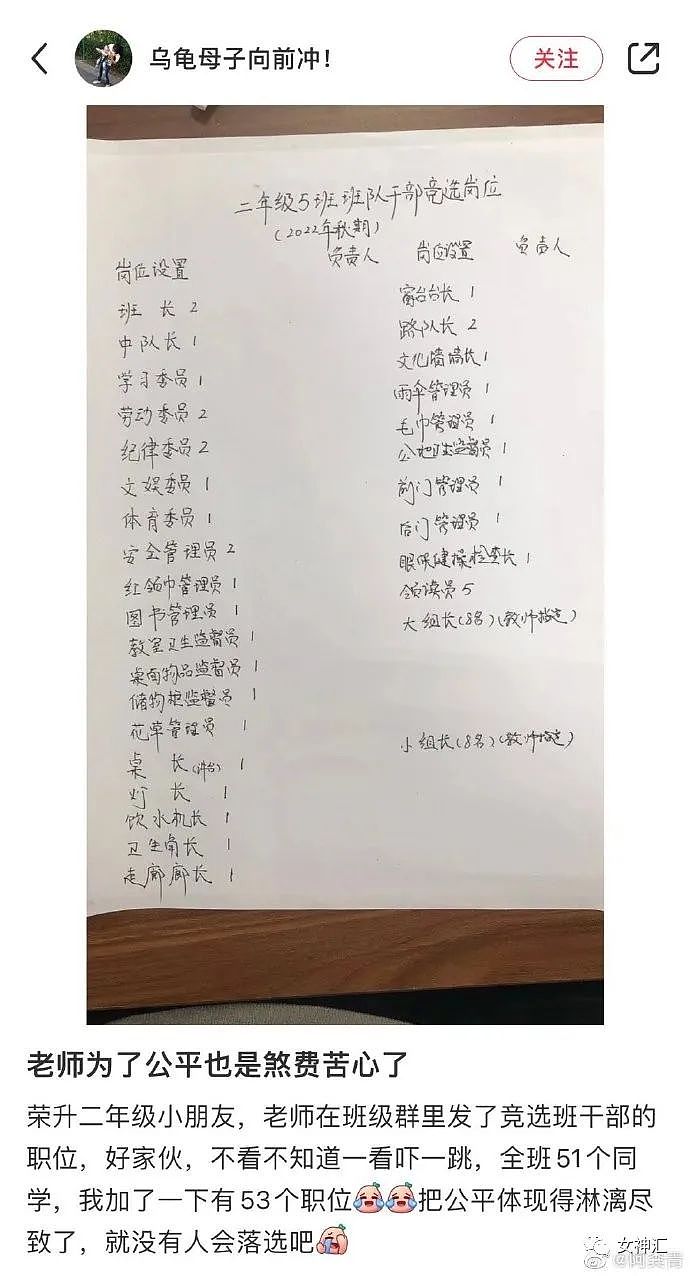 乌龟母子向前冲！
关注
二年级5班班队干部竞选岗位
（2022年秋期）
岗位设置 负责人
班 长 2
中队长 1
学习委员 1
劳动委员 2
纪律委员 2
文娱委员 1
体育委员 1
安全管理员 2
红领巾管理员 1
图书管理员 1
教室卫生监督员 1
桌面物品监督员 1
储物柜监督员 1
花草管理员 1
桌 长（讲台）1
灯 长 1
饮水机长 1
卫生角长 1
走廊廊长 1
岗位设置 负责人
窗台台长 1
路队长 2
文化墙墙长 1
雨伞管理员 1
毛巾管理员 1
公地卫生监督员 1
前门管理员 1
后门管理员 1
眼保健操检查长 1
领读员 5
大组长（8名）（教师指定）
小组长（8名）（教师指定）
老师为了公平也是煞费苦心了
荣升二年级小朋友，老师在班级群里发了竞选班干部的
职位，好家伙，不看不知道一看吓一跳，全班51个同
学，我加了一下有53个职位把公平体现得淋漓尽
致了，就没有人会落选吧
女神汇